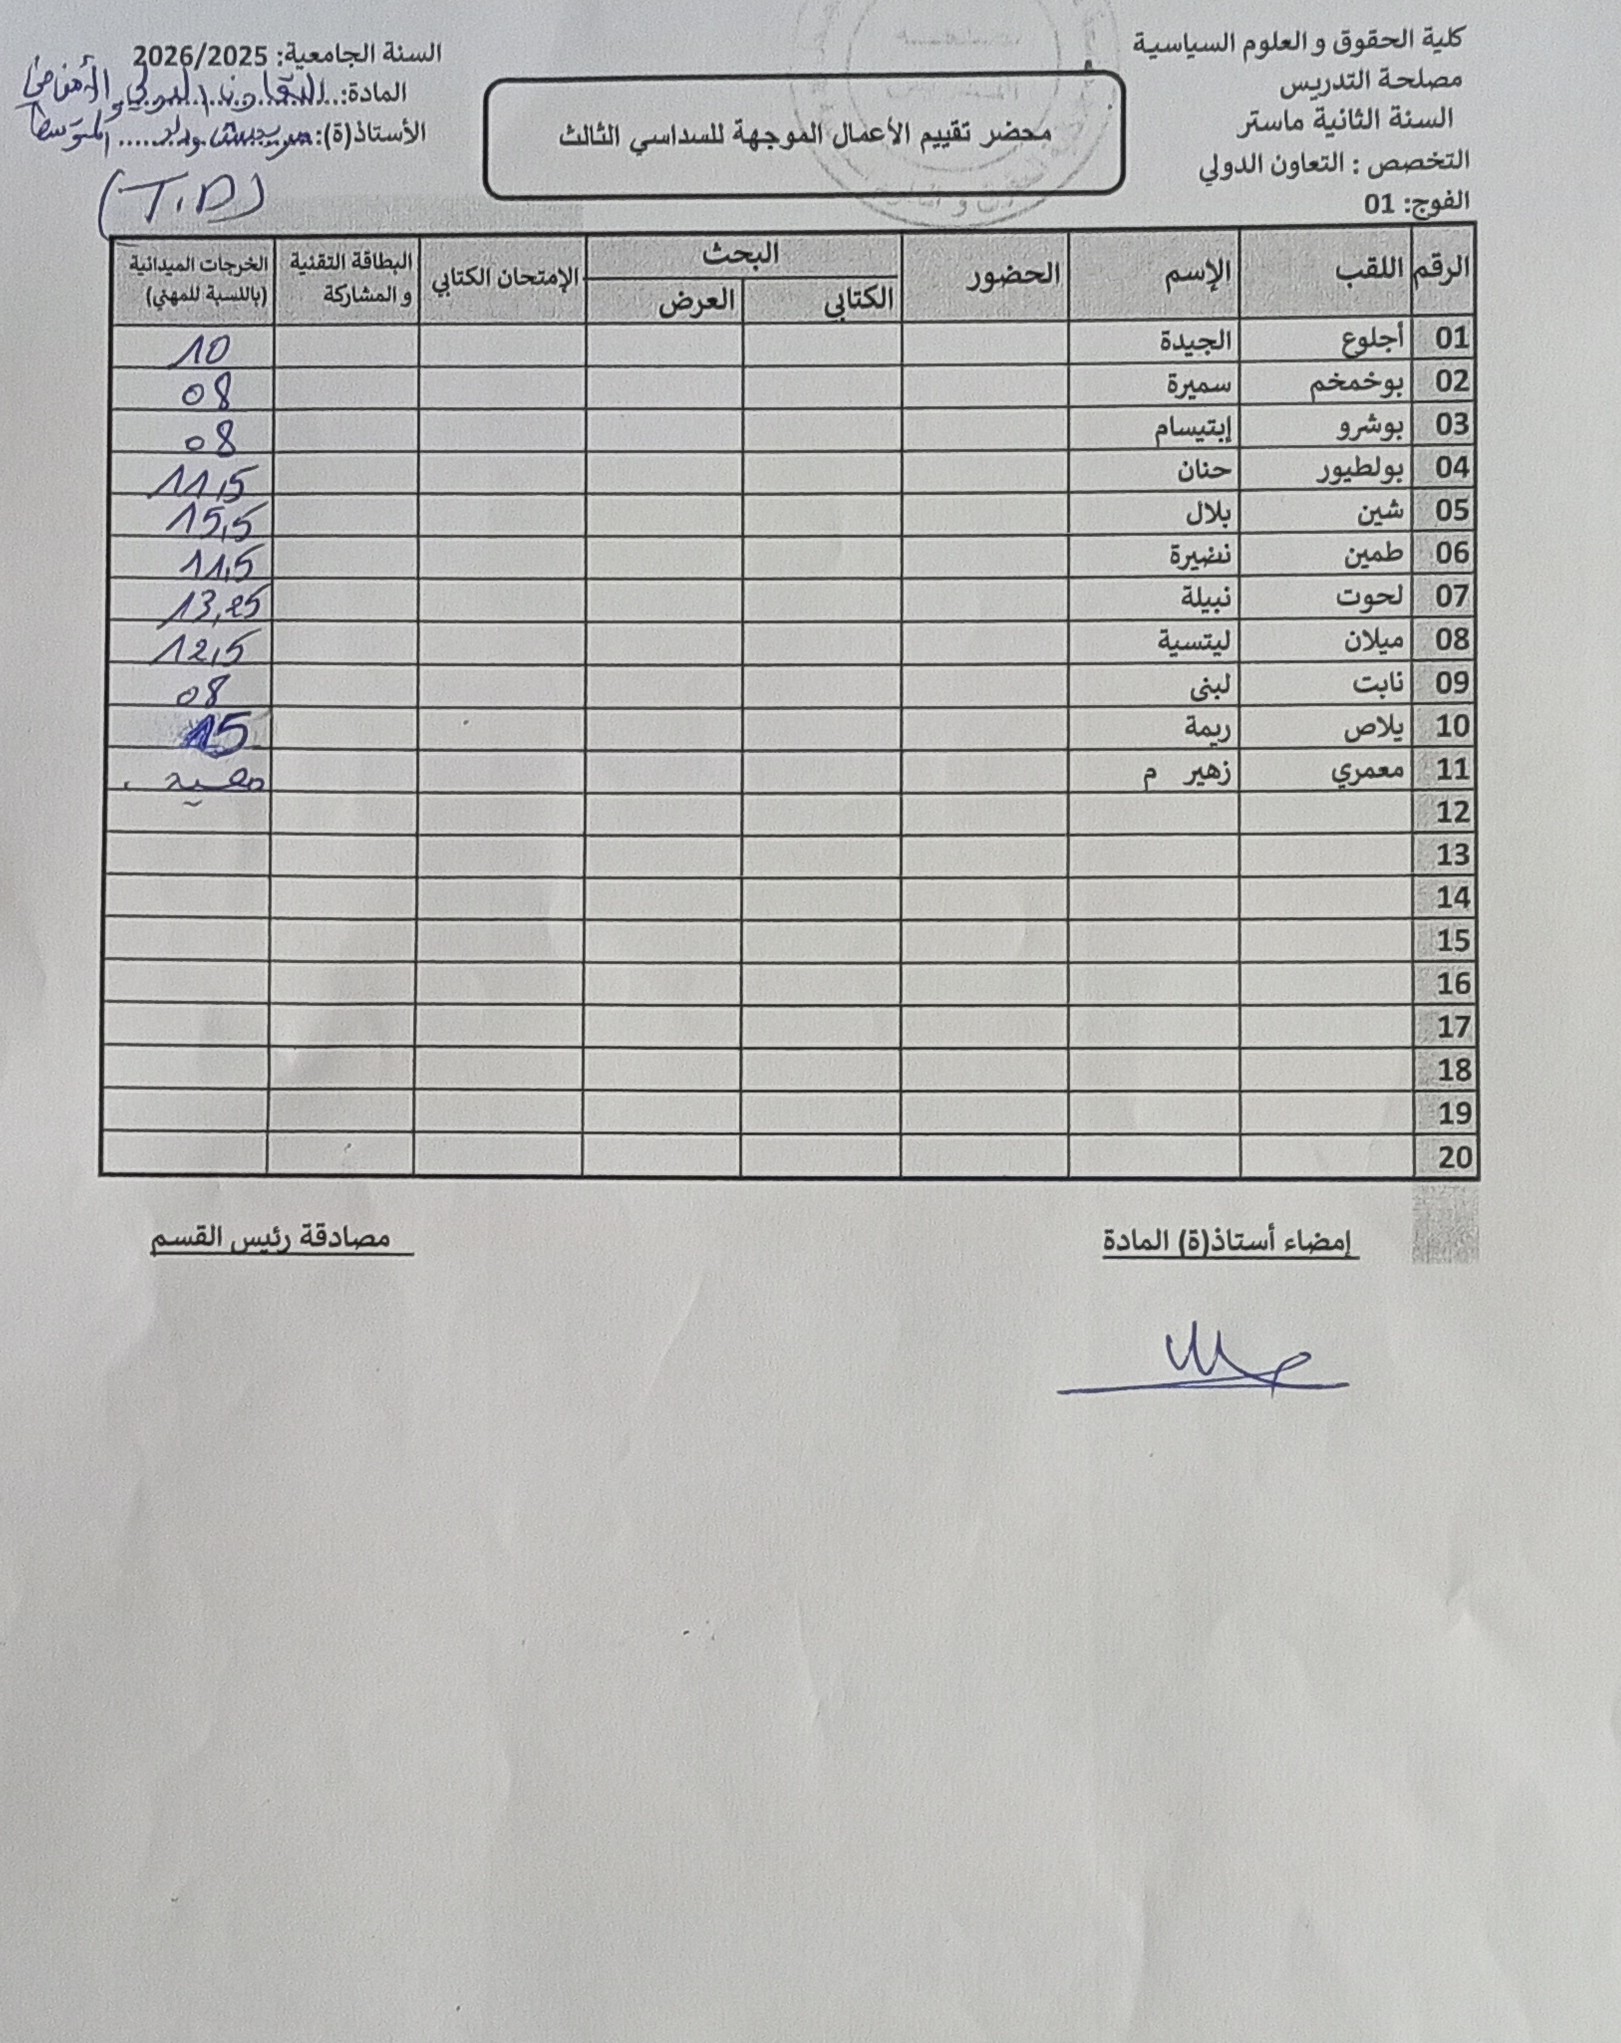 كلية الحقوق و العلوم السياسية
مصلحة التدريس
السنة الثانية ماستر
التخصص : التعاون الدولي
الفوج: 01
محضر تقييم الأعمال الموجهة للسداسي الثالث
السنة الجامعية: 2026/2025
المادة: التعاون الدولي و الأمن في
الأستاذ(ة): المتوسط
(T.D)
الرقم اللقب الإسم الحضور البحث الإمتحان الكتابي البطاقة التقنية و المشاركة الخرجات الميدانية (باللسبة للمهني)
الكتابي العرض
01 أجلوع الجيدة 10
02 بوخمخم سميرة 08
03 بوشرو إبتيسام 08
04 بولطيور حنان 11,5
05 شين بلال 15,5
06 طمين نضيرة 11,5
07 لحوت نبيلة 13,25
08 ميلان ليتسية 12,5
09 نابت لبنى 08
10 يلاص ريمة 15
11 معمري زهير م
12
13
14
15
16
17
18
19
20
إمضاء أستاذ(ة) المادة
مصادقة رئيس القسم